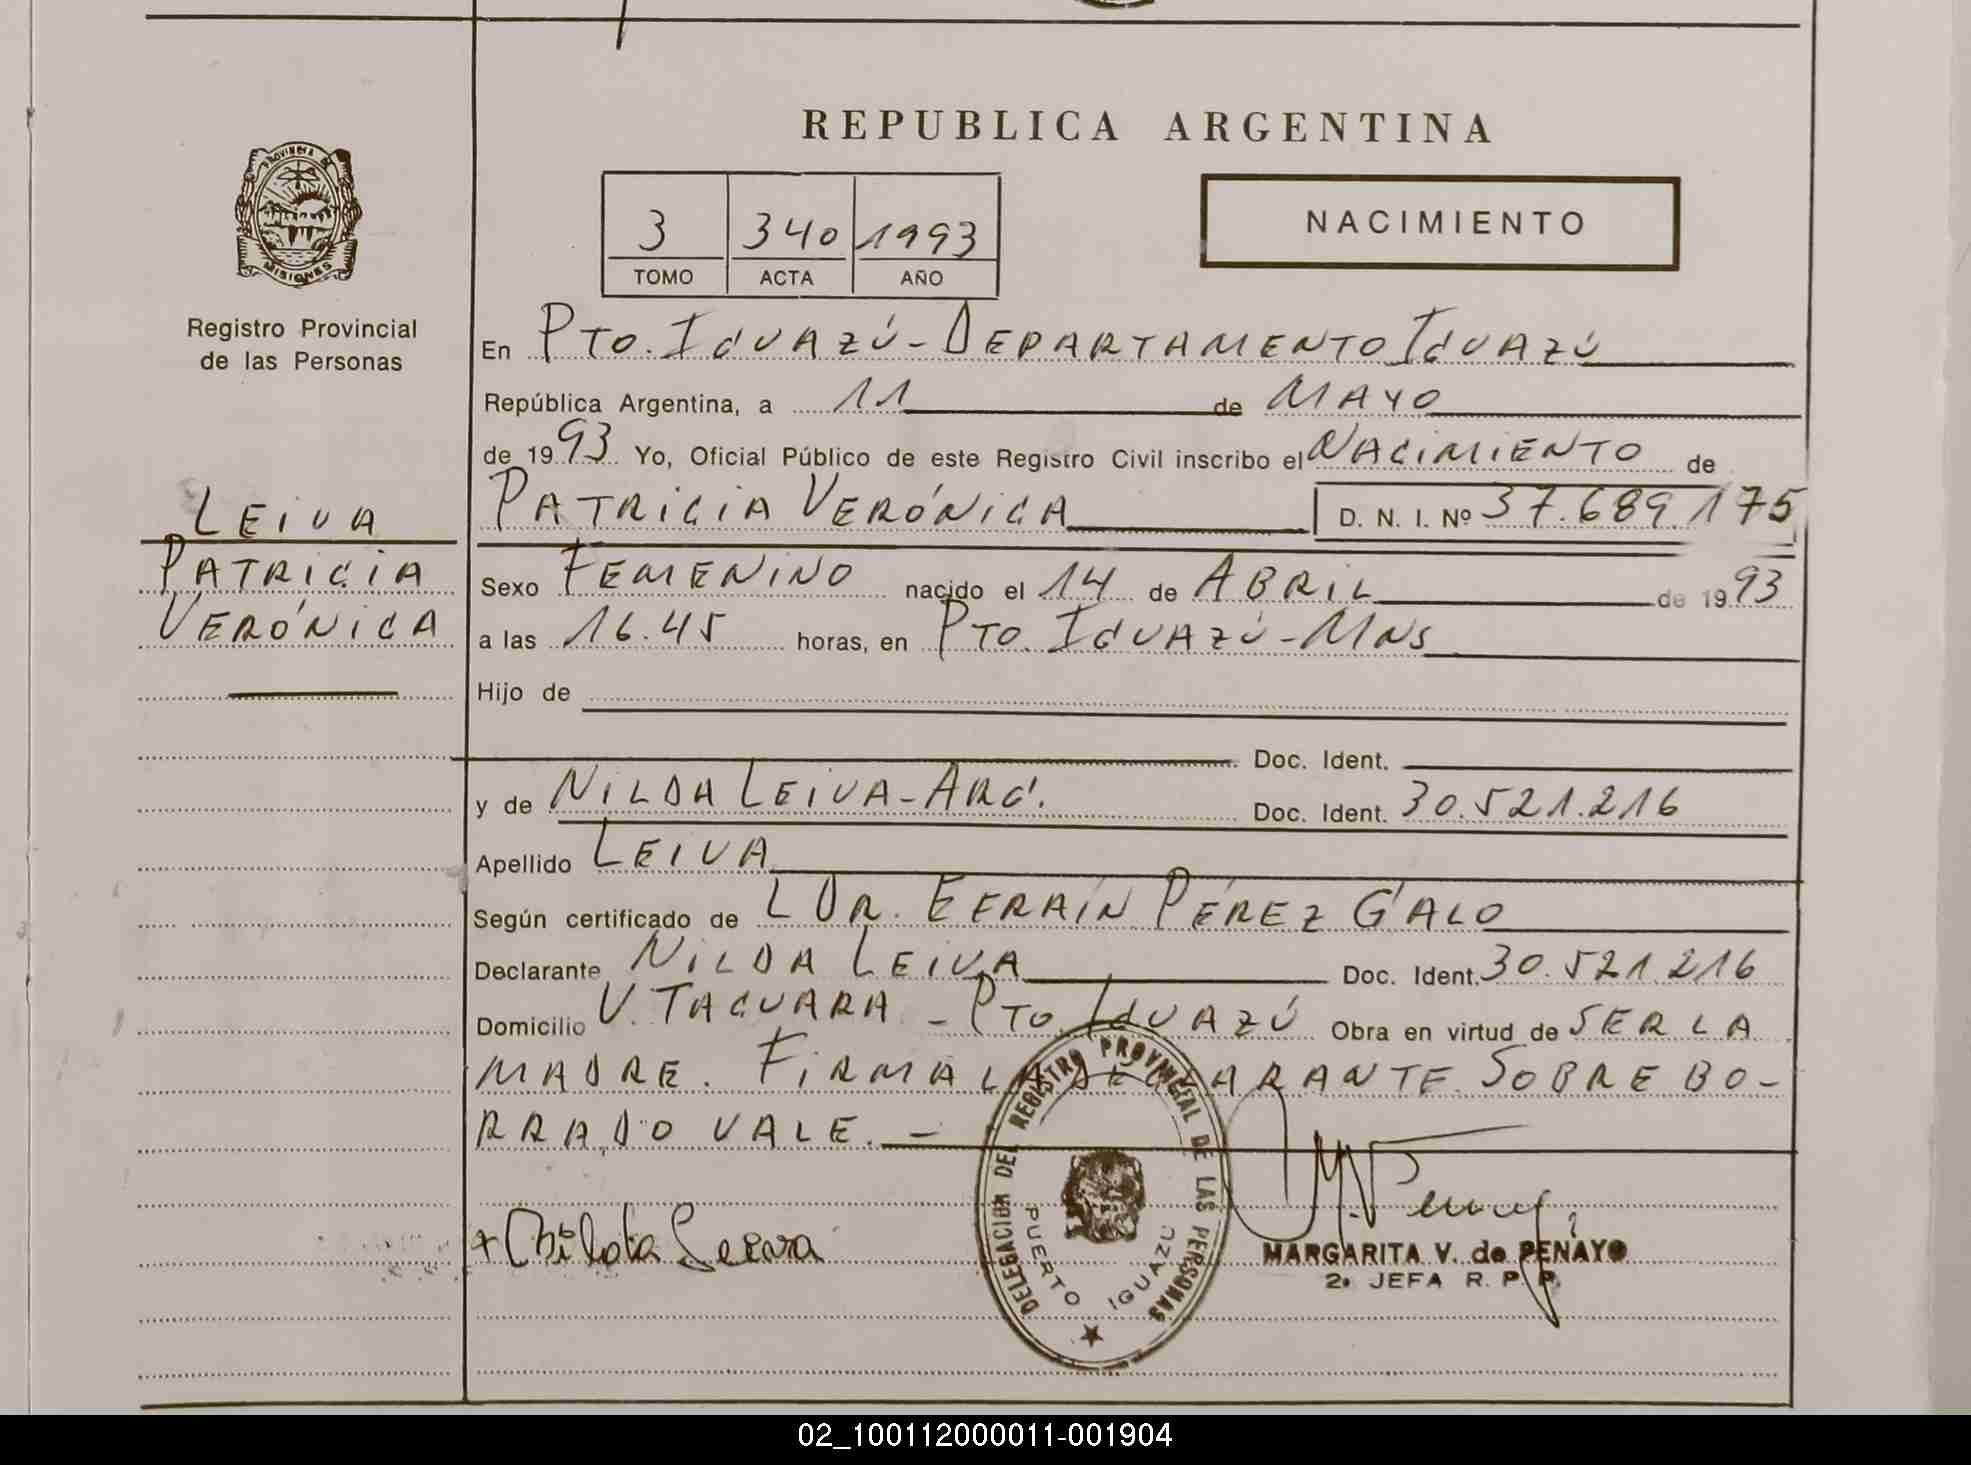 REPUBLICA ARGENTINA
PROVINCIA DE
MISIONES
3 340 1993
TOMO ACTA AÑO
NACIMIENTO
Registro Provincial
de las Personas
LEIVA
PATRICIA
VERÓNICA
En PTO. IGUAZÚ - DEPARTAMENTO IGUAZÚ
República Argentina, a 11 de MAYO
de 1993 Yo, Oficial Público de este Registro Civil inscribo el NACIMIENTO de
PATRICIA VERÓNICA D. N. I. Nº 37.689.175
Sexo FEMENINO nacido el 14 de ABRIL de 1993
a las 16.45 horas, en PTO. IGUAZÚ - MNS
Hijo de
Doc. Ident.
y de NILDA LEIVA - ARG. Doc. Ident. 30.521.216
Apellido LEIVA
Según certificado de L DR. EFRAÍN PÉREZ GALO
Declarante NILDA LEIVA Doc. Ident. 30.521.216
Domicilio V. TACUARA - PTO. IGUAZÚ Obra en virtud de SER LA
MADRE. FIRMA LA DECLARANTE. SOBRE BO-
RRADO VALE. -
DELEGACION DEL REGISTRO PROVINCIAL DE LAS PERSONAS
PUERTO IGUAZU
MARGARITA V. de PENAYO
2ª JEFA R. P. P.
02_100112000011-001904